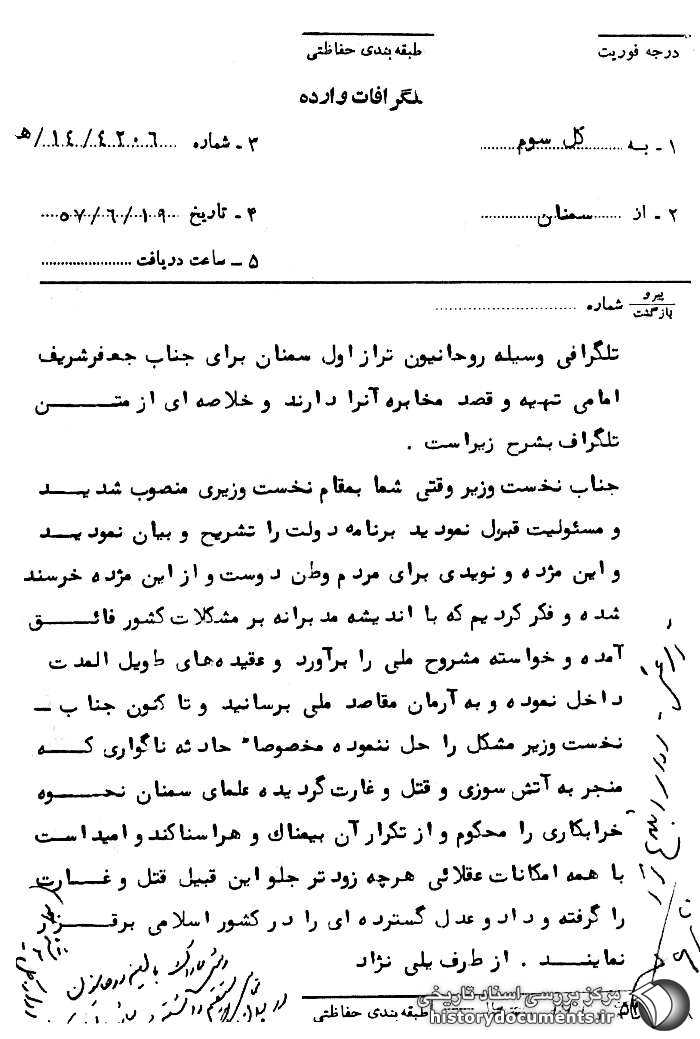 درجه فوریت
طبقه بندی حفاظتی
تلگرافات وارده
۱ - به کل سوم
۳ - شماره ۱۴/۴۲۰۶/ﻫ
۲ - از سمنان
۴ - تاریخ ۵۷/۶/۱۹
۵ - ساعت دریافت
پیرو
بازگشت
شماره
تلگرافی وسیله روحانیون تراز اول سمنان برای جناب جعفرشریف
امامی تهیه و قصد مخابره آنرا دارند و خلاصه ای از متن
تلگراف بشرح زیراست .
جناب نخست وزیر وقتی شما بمقام نخست وزیری منصوب شدید
و مسئولیت قبول نمودید برنامه دولت را تشریح و بیان نمودید
و این مژده و نویدی برای مردم وطن دوست و از این مژده خرسند
شده و فکر کردیم که با اندیشه مدبرانه بر مشکلات کشور فائق
آمده و خواسته مشروح ملی را برآورد و عقیده‌های طویل المدت
داخل نموده و به آرمان مقاصد ملی برسانید و تا کنون جناب -
نخست وزیر مشکل را حل ننموده مخصوصا" حادثه ناگواری که
منجر به آتش سوزی و قتل و غارت گردیده علمای سمنان نحوه
خرابکاری را محکوم و از تکرار آن بیمناك و هراسناکند و امید است
با همه امکانات عقلائی هرچه زودتر جلو این قبیل قتل و غارت
را گرفته و داد و عدل گسترده ای را در کشور اسلامی برقرار
نمایند . از طرف یلی نژاد
طبقه بندی حفاظتی
مرکز بررسی اسناد تاریخی
historydocuments.ir